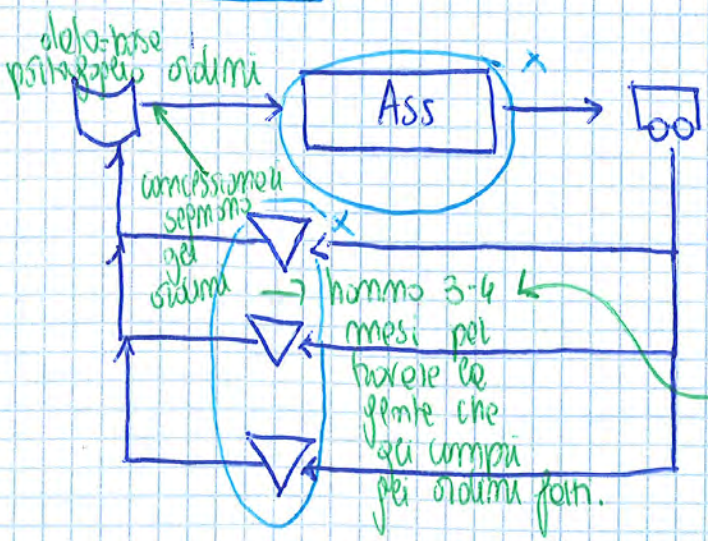 data-base
portafoglio ordini
Ass
x
concessionari
segnano
gli
ordini
x
→ hanno 3-4
mesi per
trovare la
gente che
gli compri
gli ordini fatti.